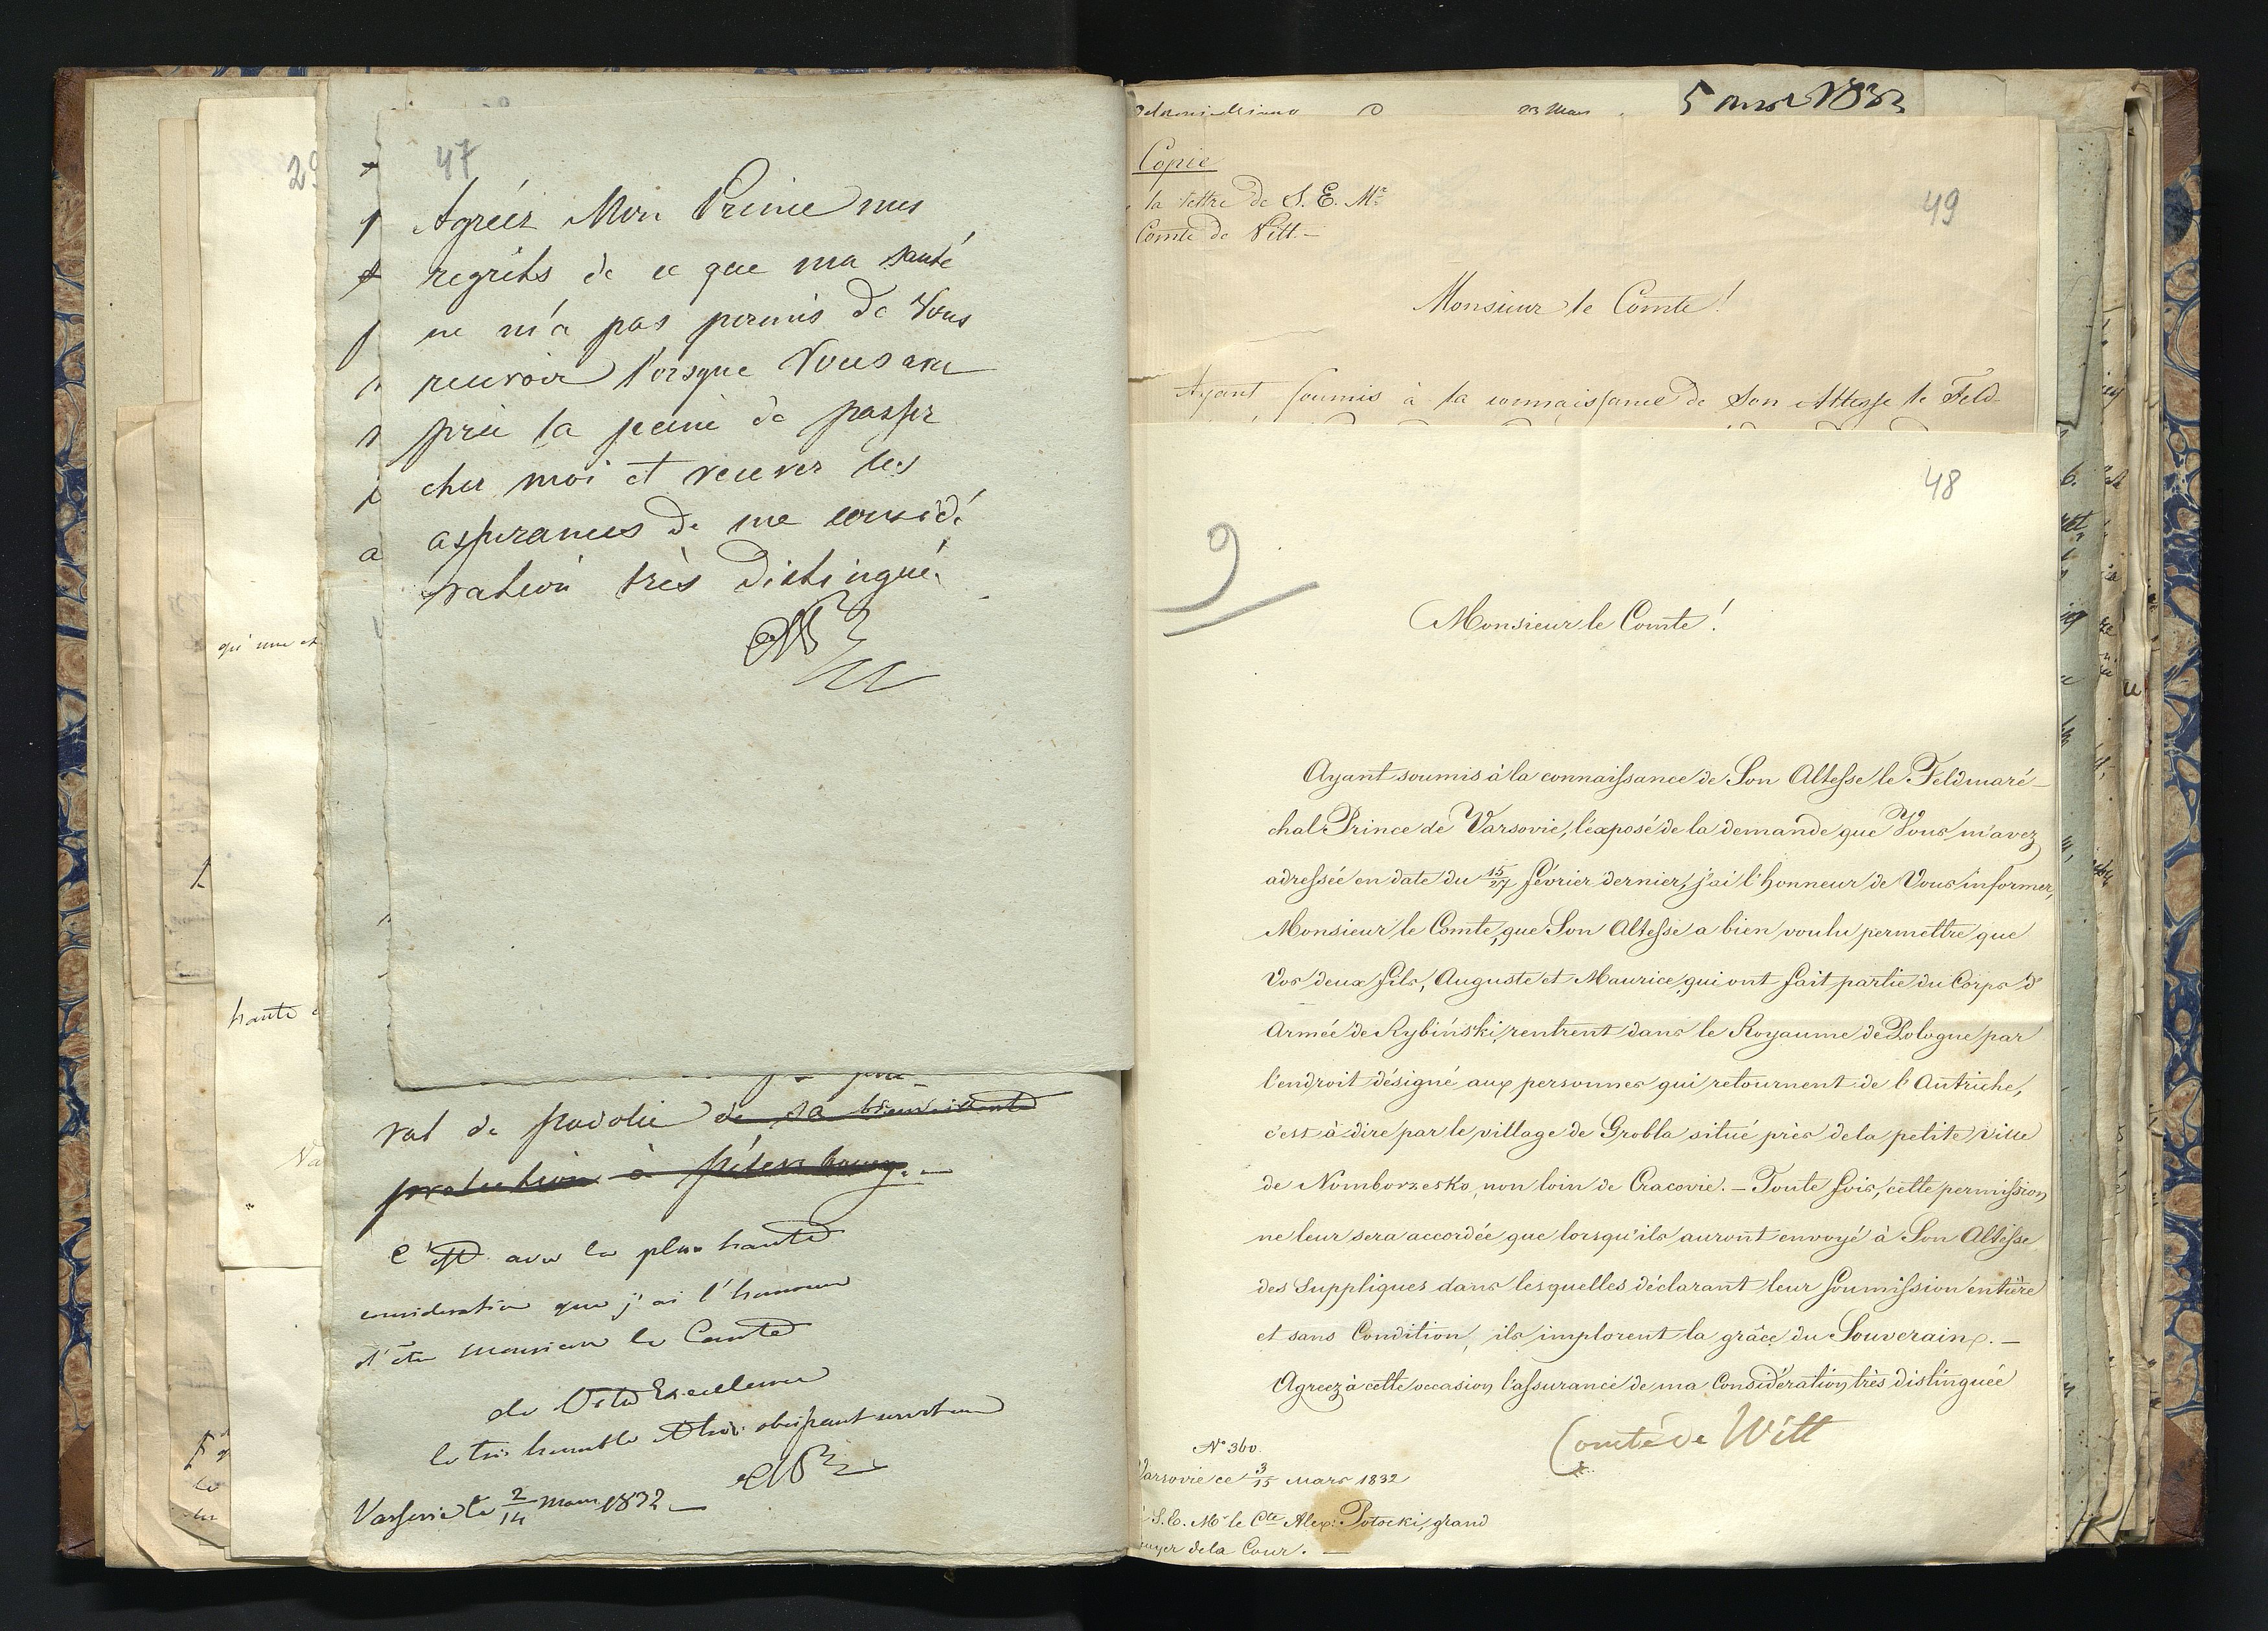 47
Agréez Mon Prince mes
regrets de ce que ma santé
ne m'a pas permis de Vous
recevoir lorsque Vous avez
prié la peine de passer
chez moi et recevez les
assurances de me considé
ration très distingué.
29
qu'une et
haute
ral de podolie de sa bienveillante
protection à pétersbourg. —
C'est avec la plus haute
consideration que j'ai l'honneur
d'être monsieur le Comte
de Votre Excellence
le très humble et très obeissant serviteur
Varsovie le 2/14 mars 1832 —
23 Mars
5 mars 1832
Copie
la lettre de S. E. Mr
Comte de Witt. —
49
Monsieur le Comte!
Ayant soumis à la connaissance de Son Altesse le Feld-
48
9
Monsieur le Comte!
Ayant soumis à la connaissance de Son Altesse le Feldmaré-
chal Prince de Varsovie, l'exposé de la demande que Vous m'avez
adressée en date du 15/27 février dernier, j'ai l'honneur de Vous informer,
Monsieur le Comte, que Son Altesse a bien voulu permettre que
Vos deux fils, Auguste et Maurice, qui ont fait partie du Corps d'
Armée de Rybiński, rentrent dans le Royaume de Pologne par
l'endroit désigné aux personnes qui retournent de l'Autriche,
c'est à dire par le village de Grobla situé près de la petite ville
de Nomborzesko, non loin de Cracovie. — Toute fois, cette permission
ne leur sera accordée que lorsqu'ils auront envoyé à Son Altesse
des Suppliques dans lesquelles déclarant leur soumission entière
et sans Condition, ils implorent la grâce du Souverain. —
Agreez à cette occasion l'assurance de ma Considération très distinguée
Comte de Witt
No 360.
Varsovie ce 3/15 Mars 1832
S. E. Mr le Cte Alex: Potocki, grand
cuyer de la Cour. —